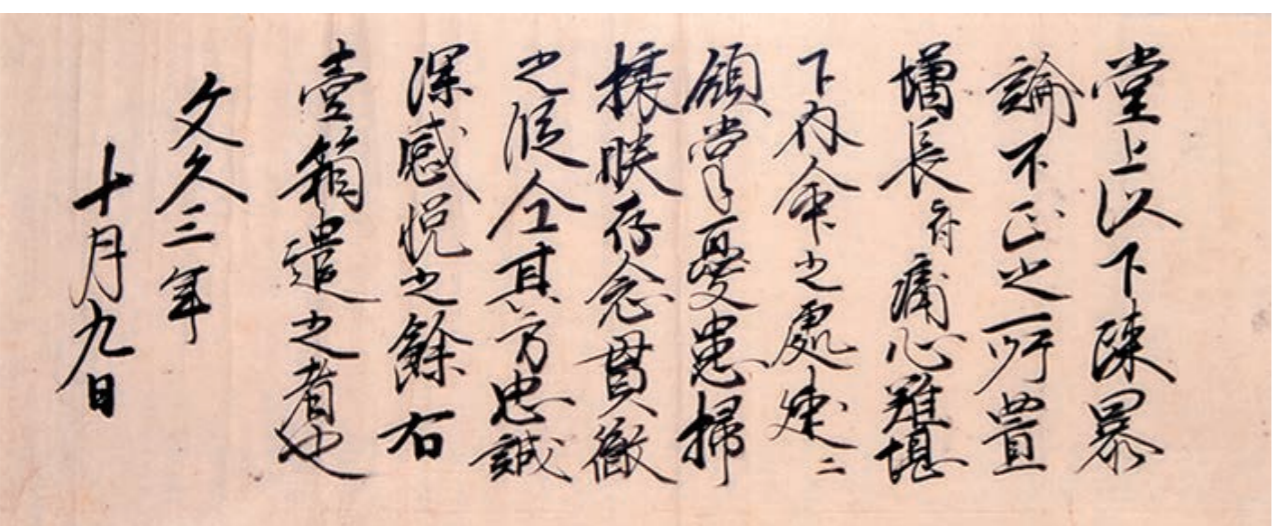 堂上以下陳暴
論不正之所置
増長付痛心難堪
下内命之處速ニ
領掌憂患掃
攘朕存念貫徹
之段全其方忠誠
深感悦之餘右
壹箱遣之者也
文久三年
十月九日